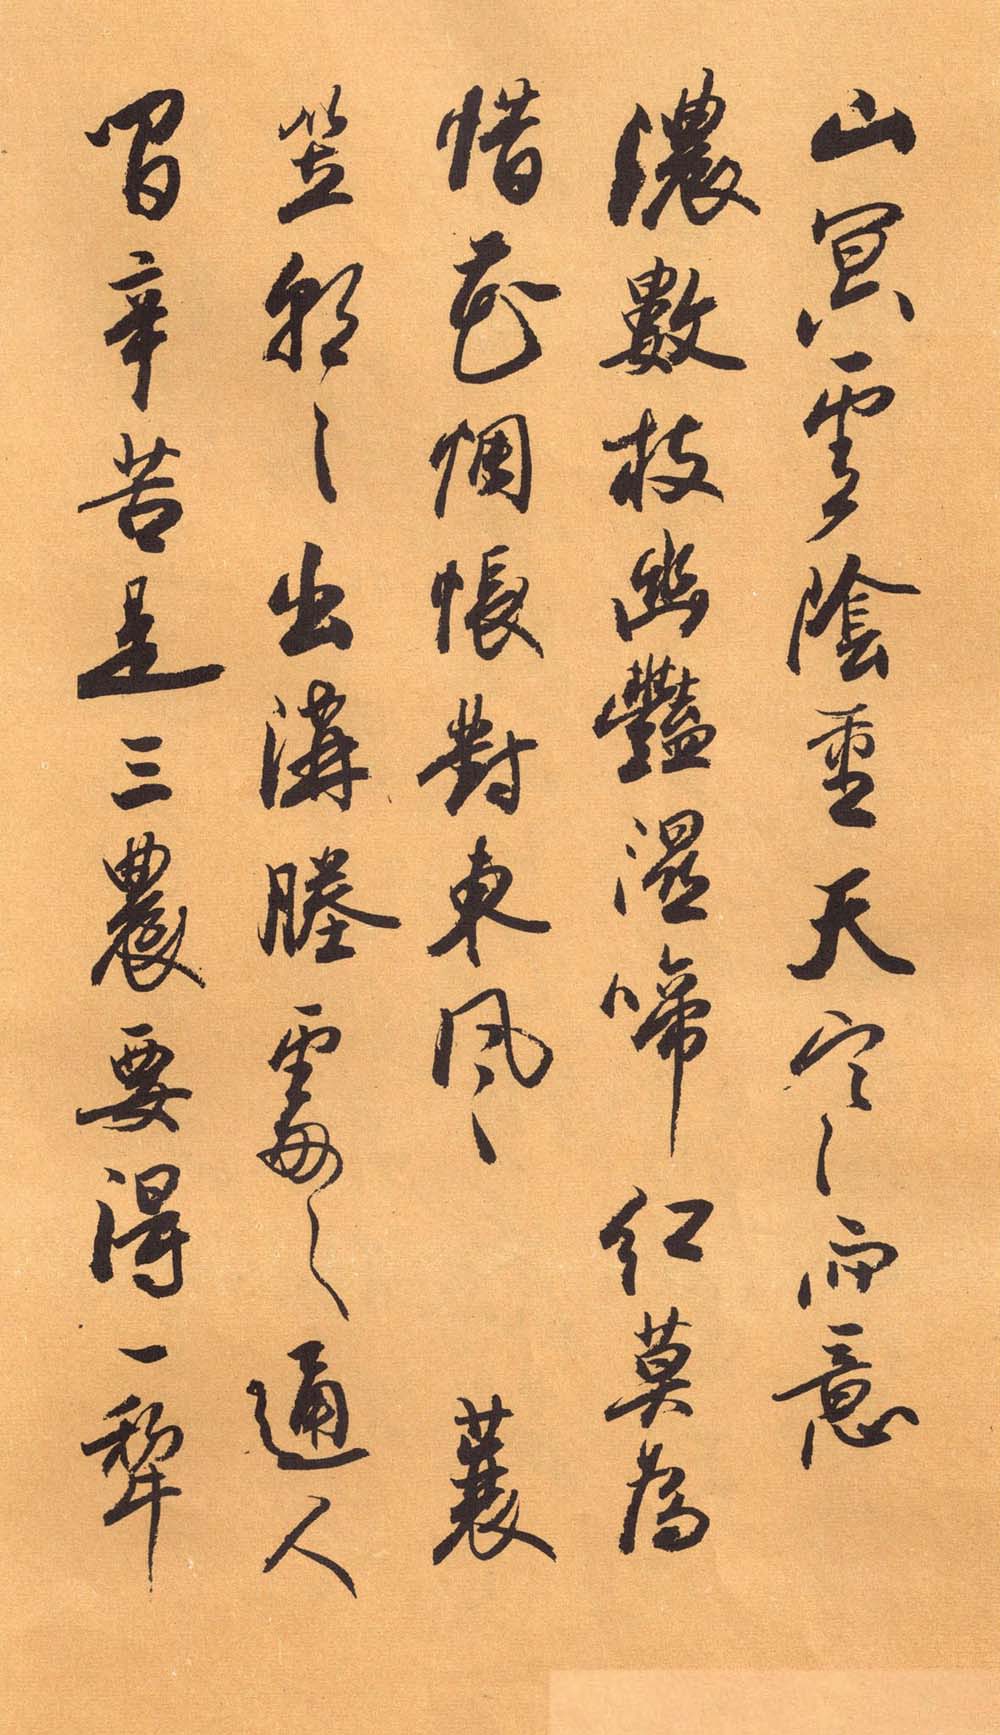 山冥雲陰重天寒雨意
濃數枝幽豔濕啼紅莫為
惜花惆悵對東風 蓑
笠朝〻出溝塍處〻通人
間辛苦是三農要得一犁